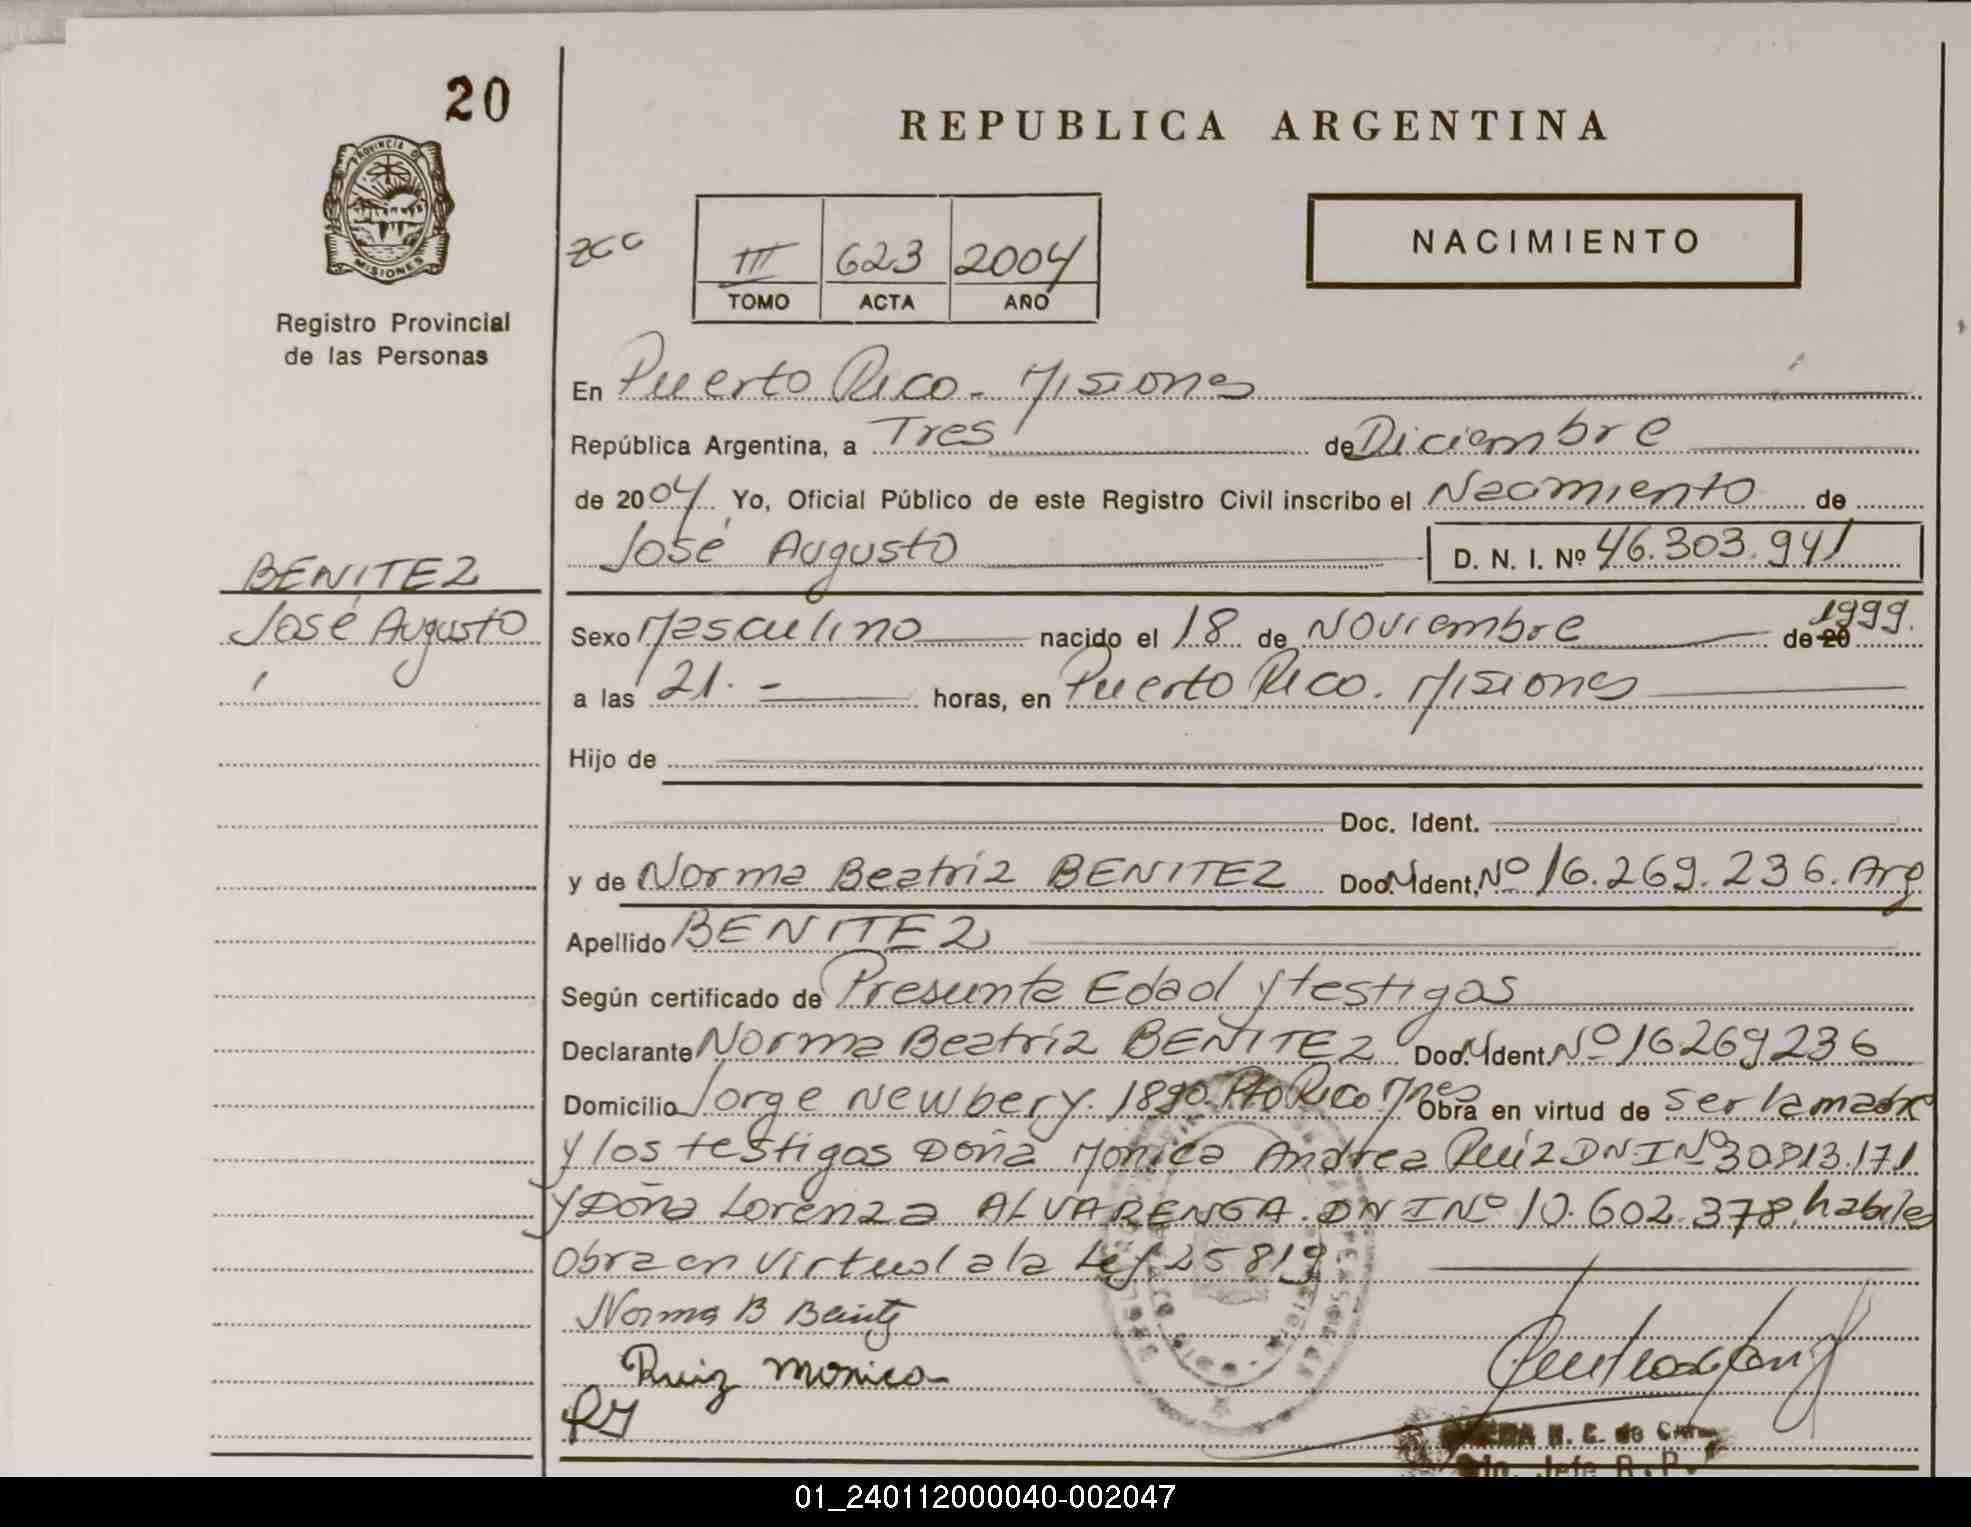 20
REPUBLICA ARGENTINA
PROVINCIA DE
MISIONES
Registro Provincial
de las Personas
NACIMIENTO
III 623 2004
TOMO ACTA AÑO
En Puerto Rico - Misiones
República Argentina, a Tres de Diciembre
de 2004. Yo, Oficial Público de este Registro Civil inscribo el Nacimiento de
José Augusto D. N. I. Nº 46.303.941
BENITEZ
José Augusto
Sexo Masculino nacido el 18 de Noviembre de 20 1999.
a las 21. - horas, en Puerto Rico. Misiones
Hijo de
Doc. Ident.
y de Norma Beatriz BENITEZ Doc. Ident. Nº 16.269.236. Arg
Apellido BENITEZ
Según certificado de Presunta Edad y testigos
Declarante Norma Beatriz BENITEZ Doc. Ident. Nº 16269236
Domicilio Jorge Newbery. 1890. Pto Rico Mnes Obra en virtud de ser la madre
y los testigos Doña Monica Andrea Ruiz DNI Nº 30813.171
y Doña Lorenza ALVARENGA. DNI Nº 10.602.378, habiles
Obra en virtud a la Ley 25819
Norma B Benitz
Ruiz Monica
R. C. de
Jefe R. P.
01_240112000040-002047